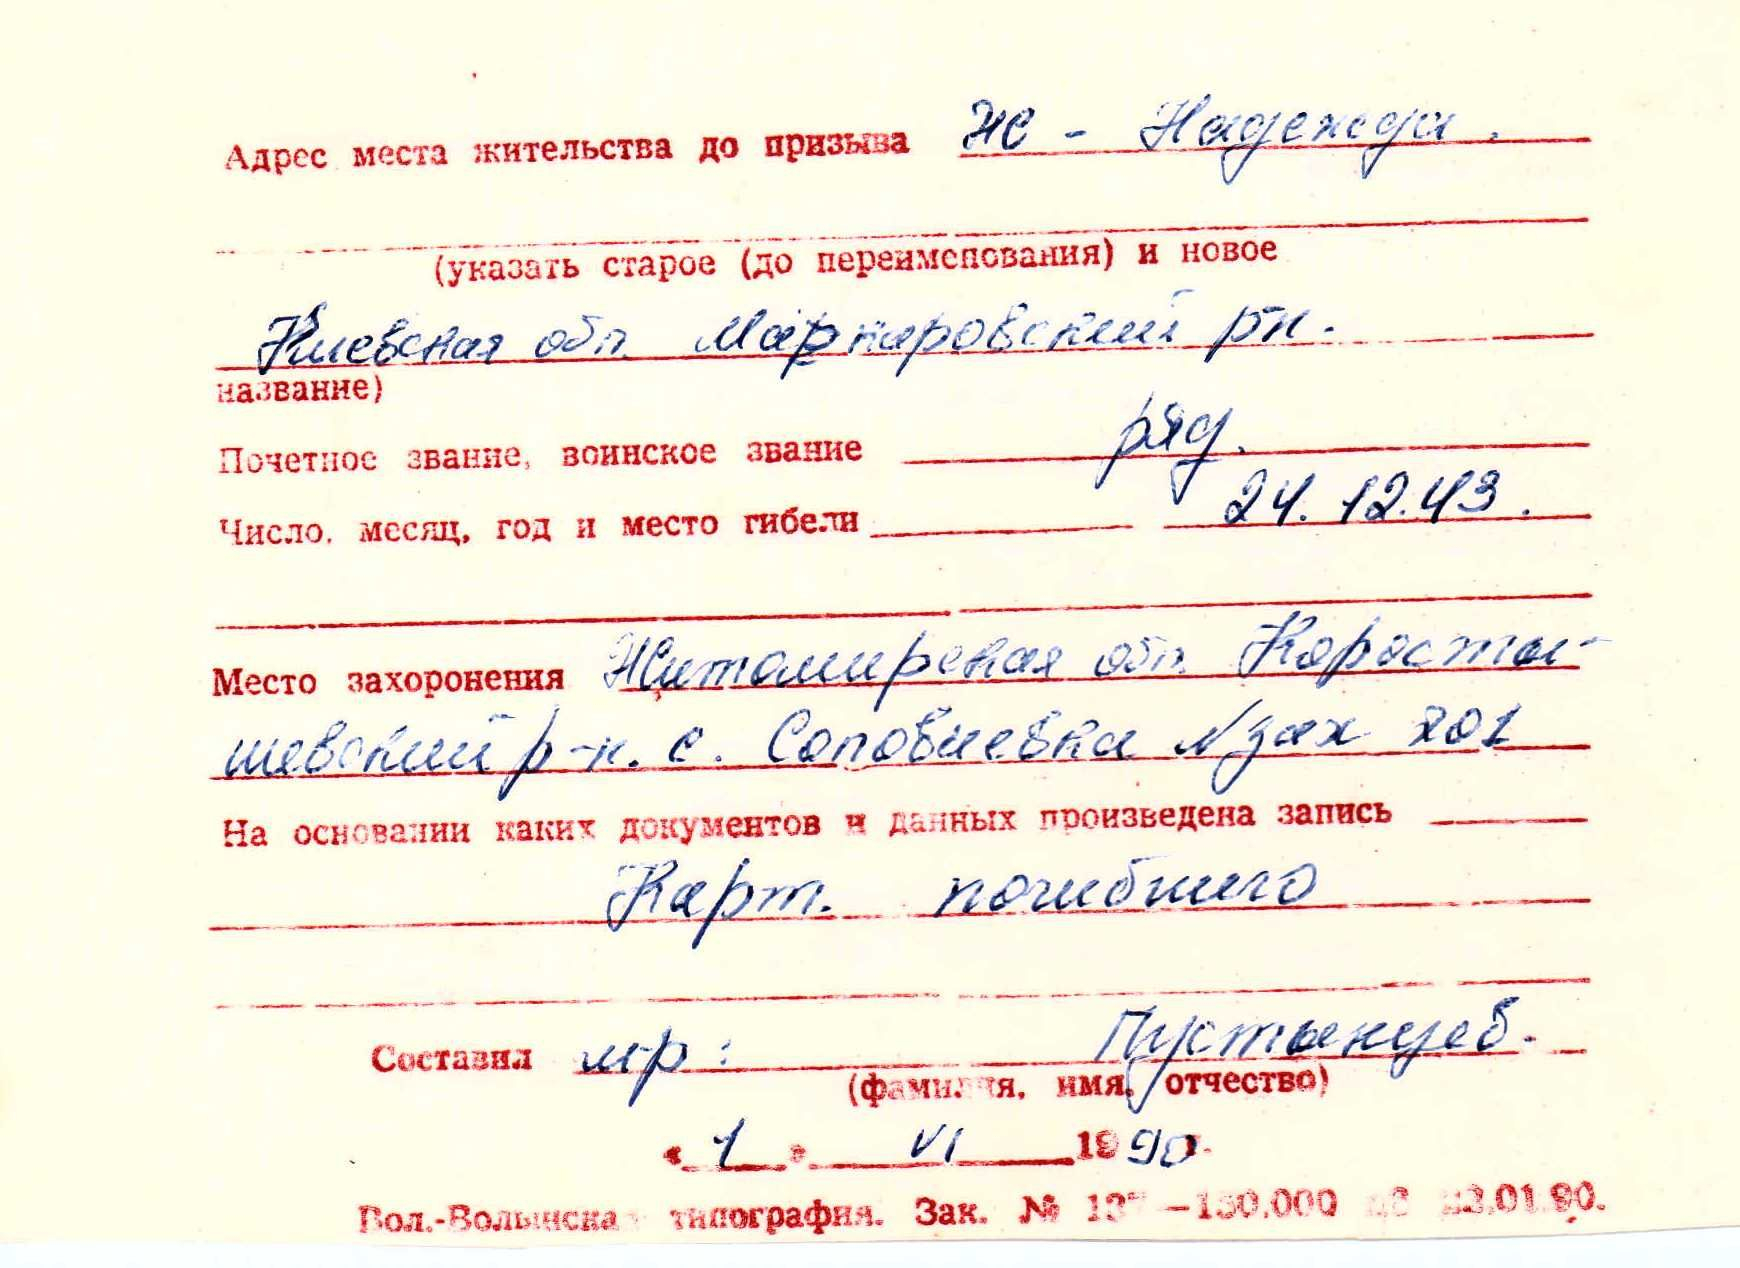 Адрес места жительства до призыва Же - Надежда.
(указать старое (до переименования) и новое
Киевская обл. Маркаровский р-н.
название)
Почетное звание, воинское звание ряд.
Число, месяц, год и место гибели 24.12.43.
Место захоронения Житомирская обл. Коросты-
шевский р-н. с. Соловиевка N зах 201
На основании каких документов и данных произведена запись
Карт. погибшего
Составил м-р: Пустынцев.
(фамилия, имя, отчество)
« 1 » VI 1990 г.
Вол.-Волынская типография. Зак. № —150.000 23.01.90.